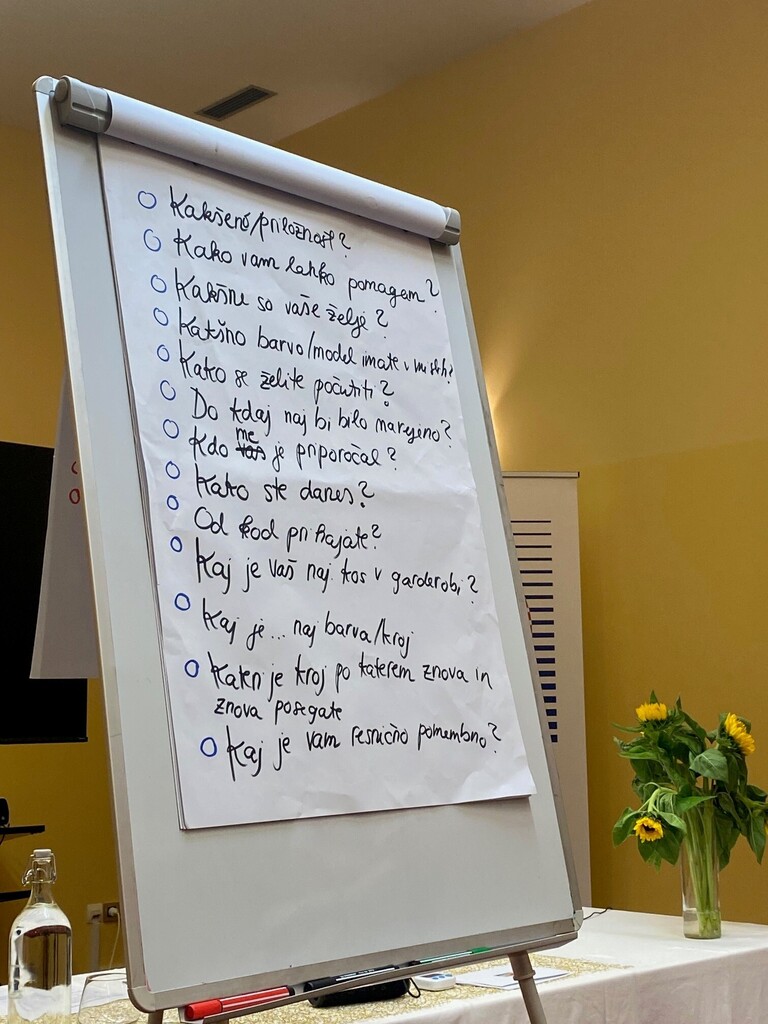 /priložnost?
Kako vam lahko pomagam?
Kakšne so vaše želje?
Kakšno barvo/model imate v mislih?
Kako se želite počutiti?
Do kdaj naj bi bilo narejeno?
me
Kdo vas je priporočal?
Kako ste danes?
Od kod prihajate?
Kaj je vaš naj kos v garderobi?
Kaj je... naj barva/kroj
Kateri je kroj po katerem znova in
znova posegate
Kaj je vam resnično pomembno?